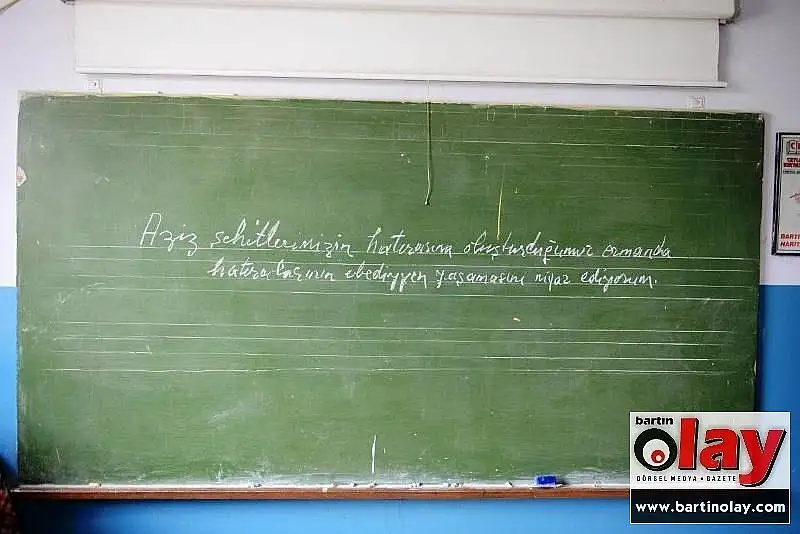 Aziz şehitlerimizin hatırasına oluşturduğumuz ormanda
hatıralarının ebediyyen yaşamasını niyaz ediyorum.
BARTIN
bartın
olay
GÖRSEL MEDYA • GAZETE
www.bartinolay.com